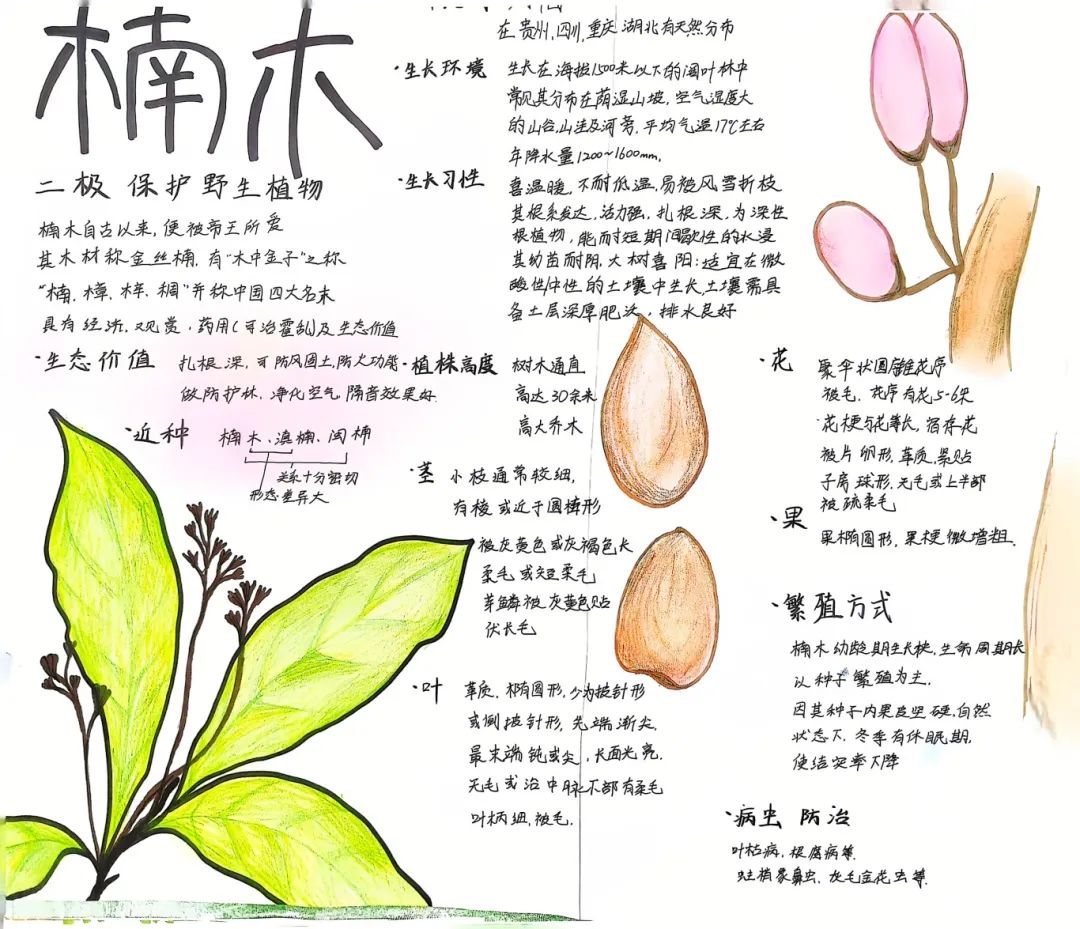 楠木
二极 保护野生植物
楠木自古以来,便被帝王所爱
其木材称金丝楠,有“木中金子”之称
“楠、樟、梓、椆”并称中国四大名木
具有经济、观赏,药用(可治霍乱)及生态价值
·生态价值
扎根深,可防风固土,防火功能
做防护林、净化空气 隔音效果好
·近种
楠木、滇楠、闽楠
关系十分密切
形态差异大
在贵州,四川,重庆 湖北有天然分布
·生长环境
生长在海拔1500米以下的阔叶林中
常见其分布在荫湿山坡,空气湿度大
的山谷,山洼及河旁,平均气温17℃左右
年降水量1200~1600mm.
·生长习性
喜温暖,不耐低温,易被风雪折枝
其根系发达,活力强,扎根深,为深性
根植物,能耐短期间歇性的水浸
其幼苗耐阴,大树喜阳;适宜在微
酸性中性的土壤中生长,土壤需具
备土层深厚肥沃,排水良好
·植株高度
树木通直
高达30余米
高大乔木
·茎
小枝通常较细,
有棱或近于圆棒形
被灰黄色或灰褐色长
柔毛或短柔毛
芽鳞被灰黄色贴
伏长毛
·叶
革质,椭圆形,少为披针形
或倒披针形,先端渐尖,
最末端钝或尖,长面光亮,
无毛或沿中脉下部有柔毛
叶柄细,被毛.
·花
聚伞状圆锥花序
被毛,花序有花5-6朵
·花梗与花等长,宿存花
被片卵形,革质,紧贴
子房球形,无毛或上半部
被疏柔毛
·果
果椭圆形,果梗微增粗.
·繁殖方式
楠木幼龄期生长快,生命周期长
以种子繁殖为主.
因其种子内果皮坚硬,自然
状态下,冬季有休眠期,
使结实率下降
·病虫 防治
叶枯病,根腐病等.
蛀梢象鼻虫,灰毛金花虫等.